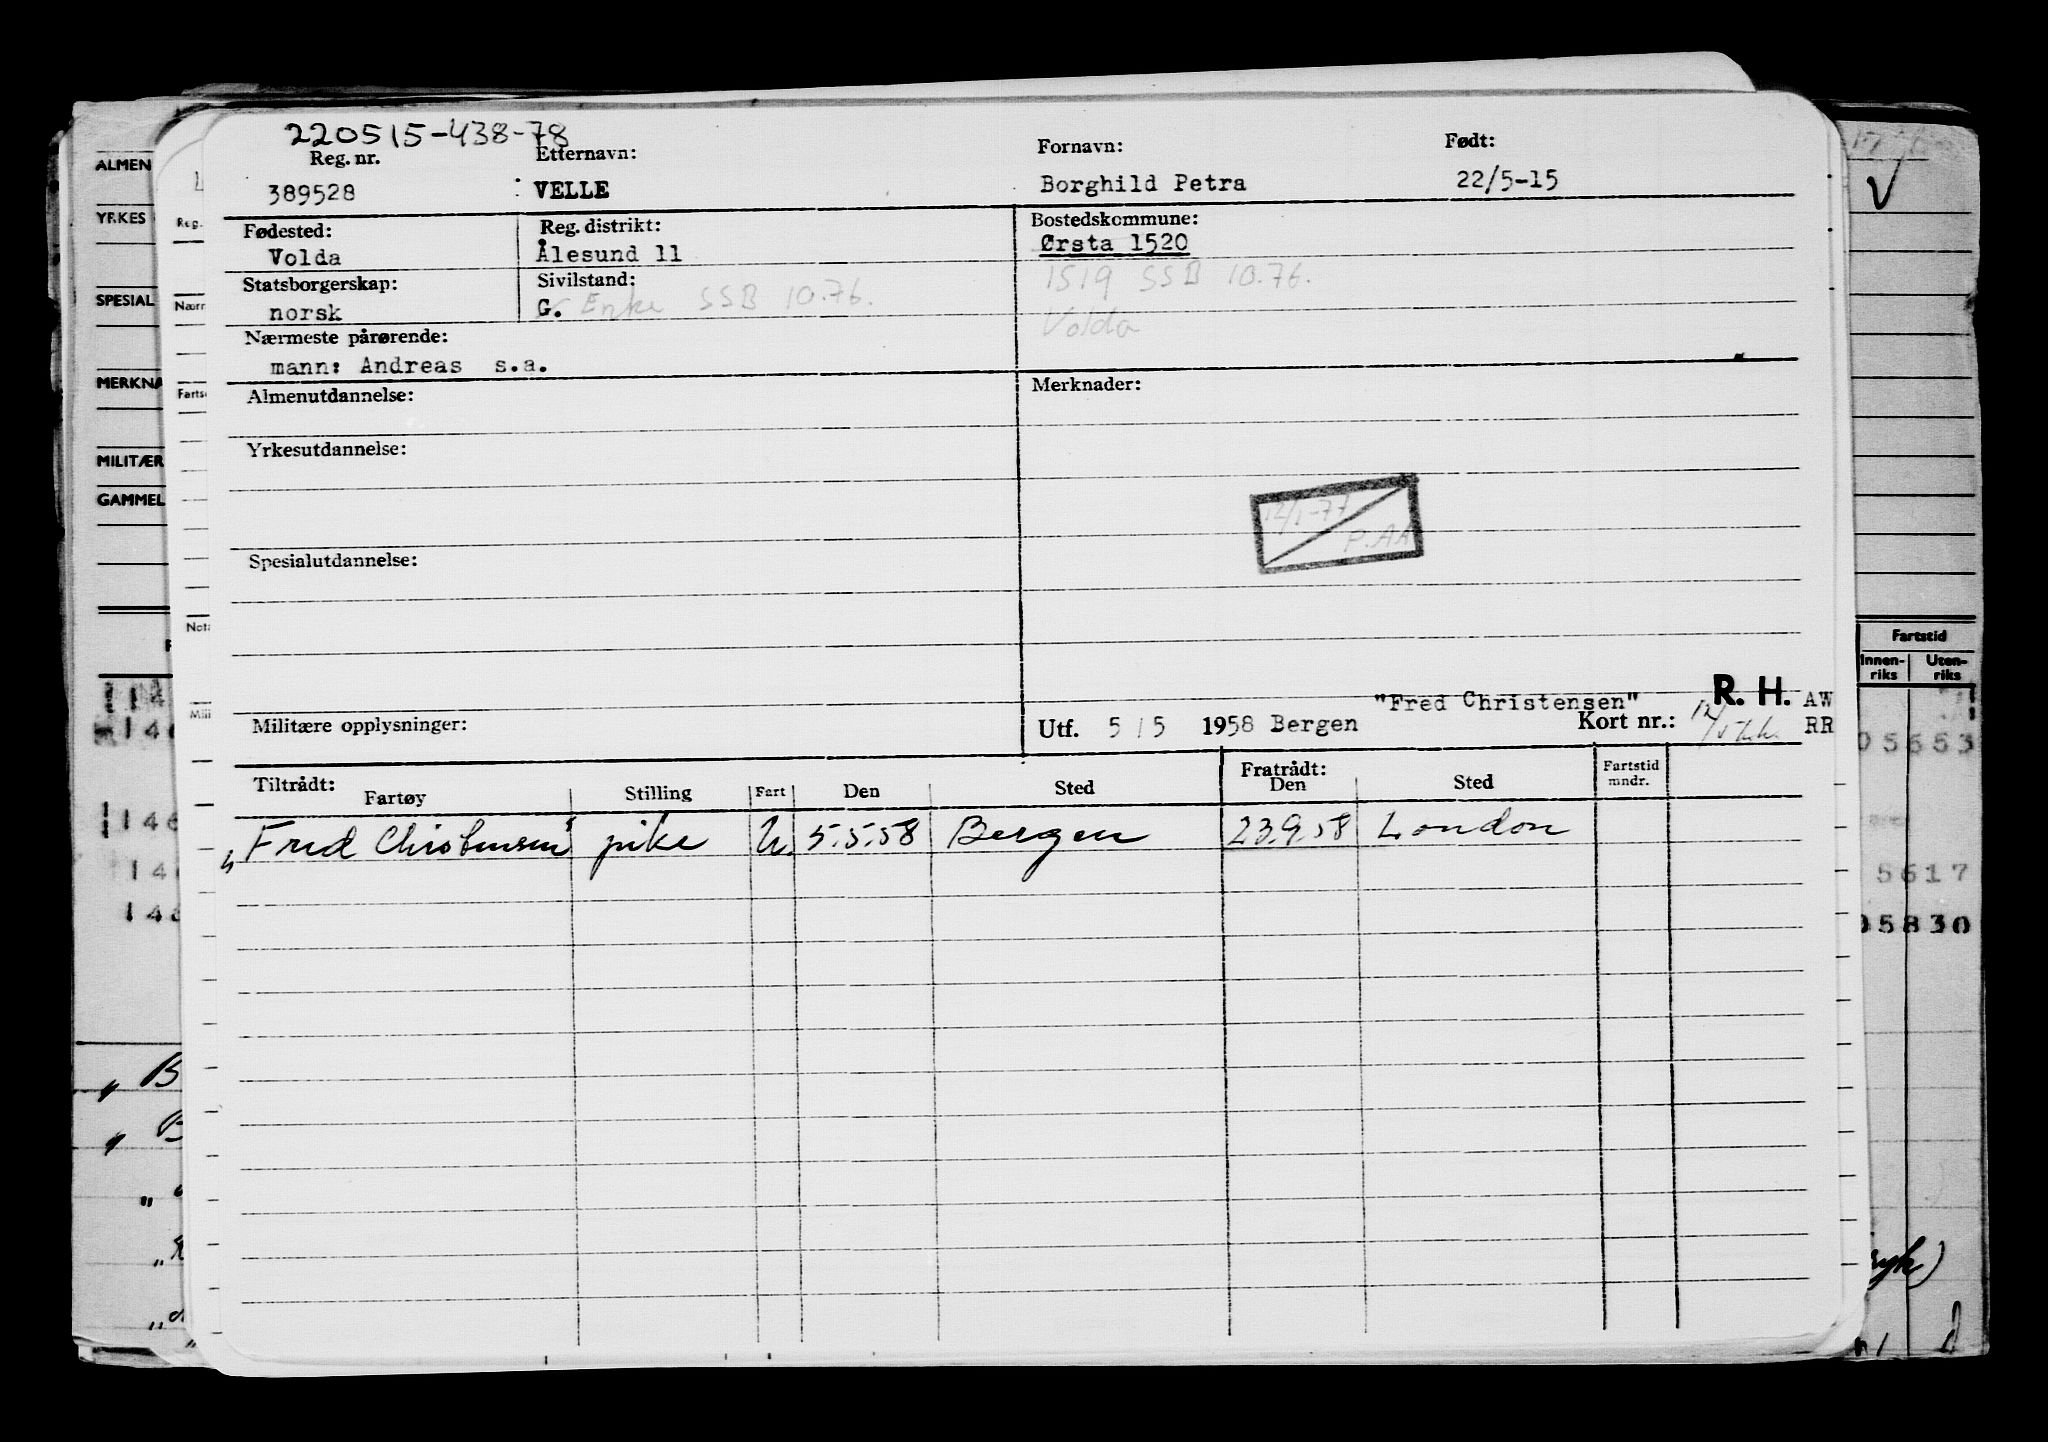 220515-438-78
Reg. nr. Etternavn: Fornavn: Født:
389528 VELLE Borghild Petra 22/5-15
Fødested: Reg. distrikt: Bostedskommune:
Volda Ålesund 11 Ørsta 1520
Statsborgerskap: Sivilstand: 1519 SSB 10.76.
norsk G. Enke SSB 10.76. Volda
Nærmeste pårørende:
mann: Andreas s.a.
Almenutdannelse: Merknader:
Yrkesutdannelse:
12/1-77
P.AA
Spesialutdannelse:
"Fred Christensen" R. H. AW
Militære opplysninger: Utf. 5/5 1958 Bergen Kort nr.: RR
Tiltrådt: Fratrådt: Fartstid
Fartøy Stilling Fart Den Sted Den Sted mndr.
"Fred Christensen" pike U. 5.5.58 Bergen 23.9.58 London
ALMEN
YRKES
SPESIAL
MERKNA
MILITÆR
GAMMEL
Reg.
Nærr
Farts
Nota
Mili
Fartstid
Innen- Uten-
riks riks
05653
5617
05830